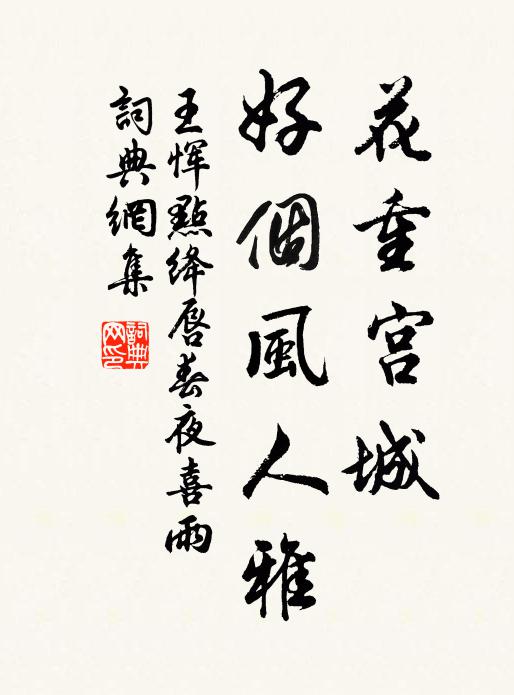 花重宫城
好個風人雅
王恽點绛唇春夜喜雨
詞典網集
詞典网印